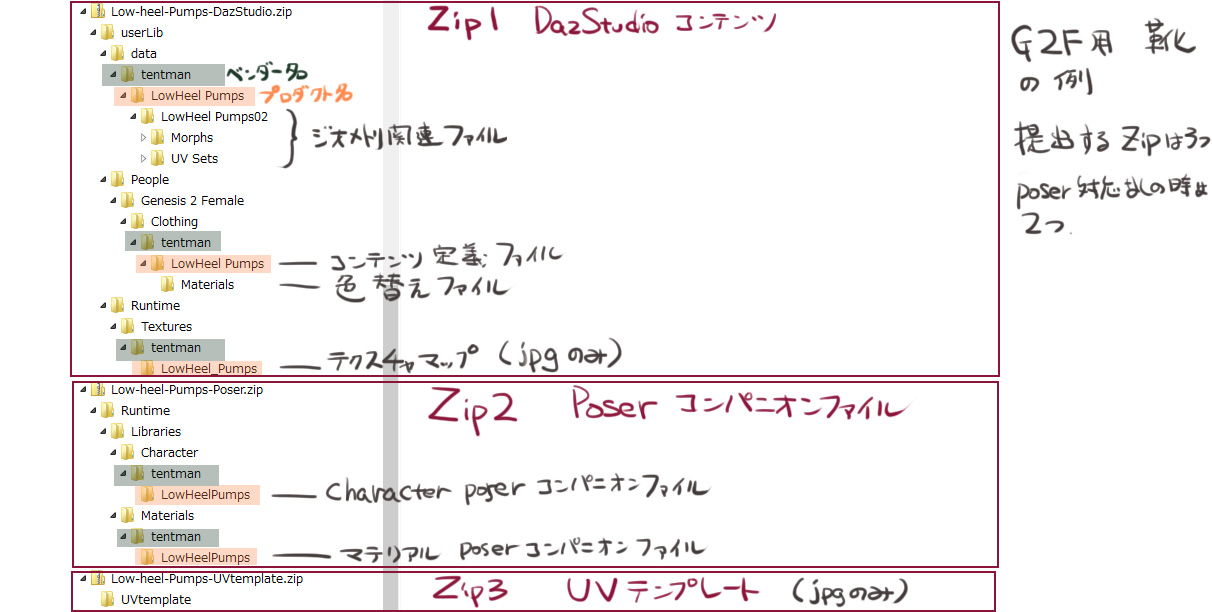 Low-heel-Pumps-DazStudio.zip
Zip1 DazStudio コンテンツ
userLib
data
tentman
ベンダー名
LowHeel Pumps
プロダクト名
LowHeel Pumps02
Morphs
UV Sets
ジオメトリ関連ファイル
People
Genesis 2 Female
Clothing
tentman
LowHeel Pumps
コンテンツ定義ファイル
Materials
色替えファイル
Runtime
Textures
tentman
LowHeel_Pumps
テクスチャマップ (jpgのみ)
Low-heel-Pumps-Poser.zip
Zip2 Poser コンパニオンファイル
Runtime
Libraries
Character
tentman
LowHeelPumps
Character poser コンパニオンファイル
Materials
tentman
LowHeelPumps
マテリアル poser コンパニオンファイル
Low-heel-Pumps-UVtemplate.zip
Zip3 UVテンプレート (jpgのみ)
UVtemplate
G2F用 靴
の例
提出するZipは3つ
poser対応なしの時は
2つ.